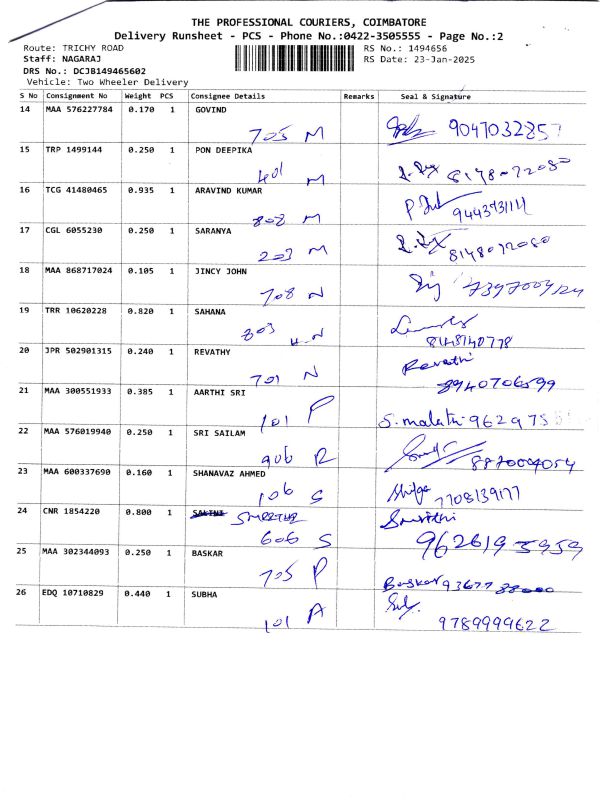 THE PROFESSIONAL COURIERS, COIMBATORE
Delivery Runsheet - PCS - Phone No.:0422-3505555 - Page No.:2
Route: TRICHY ROAD RS No.: 1494656
Staff: NAGARAJ RS Date: 23-Jan-2025
DRS No.: DCJB149465602
Vehicle: Two Wheeler Delivery
S No Consignment No Weight PCS Consignee Details Remarks Seal & Signature
14 MAA 576227784 0.170 1 GOVIND
705 M 9047032857
15 TRP 1499144 0.250 1 PON DEEPIKA
401 M
16 TCG 41480465 0.935 1 ARAVIND KUMAR
808 M
17 CGL 6055230 0.250 1 SARANYA
203 M
18 MAA 868717024 0.105 1 JINCY JOHN
708 N
19 TRR 10620228 0.820 1 SAHANA
803 N
20 JPR 502901315 0.240 1 REVATHY Revathi
701 N 8940706599
21 MAA 300551933 0.385 1 AARTHI SRI
101 P S. malathi 962975
22 MAA 576019940 0.250 1 SRI SAILAM
906 R
23 MAA 600337690 0.160 1 SHANAVAZ AHMED
106 S 7708139177
24 CNR 1854220 0.800 1
606 S
25 MAA 302344093 0.250 1 BASKAR
705 P Baskar
26 EDQ 10710829 0.440 1 SUBHA
101 A 9789999622